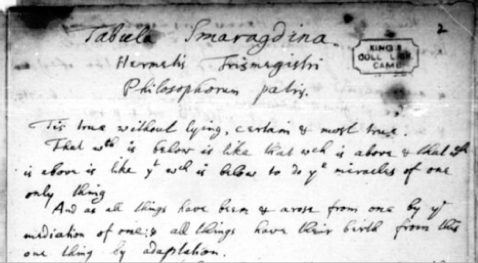 Tabula Smaragdina.
2
Hermetis Trismegistri
Philosophorum patris.
KING'S
COLL LIBR
CAMB
Tis true without lying, certain & most true.
That wch is below is like that wch is above & that wch
is above is like yt wch is below to do ye miracles of one
only thing
And as all things have been & arose from one by ye
mediation of one: so all things have their birth from this
one thing by adaptation.